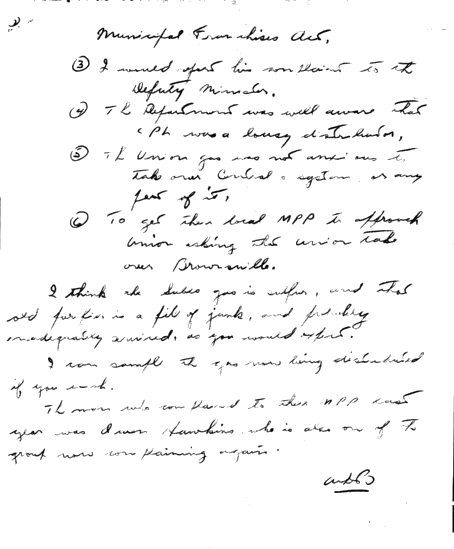 2.
Municipal Franchises Act.
③ I would report his complaint to the
Deputy Minister.
④ The Department was well aware that
CPL was a lousy distributor.
⑤ The Union gas was not anxious to
take over Central's system or any
part of it.
⑥ To get their local MPP to approach
Union asking that Union take
over Brownsville.
I think the gas is sulfur, and that
old purifier is a pile of junk, and probably
inadequately serviced, as you would expect.
I can sample the gas now being distributed
if you wish.
The man who complained to their MPP last
year was Hawkins who is also one of the
group now complaining again.